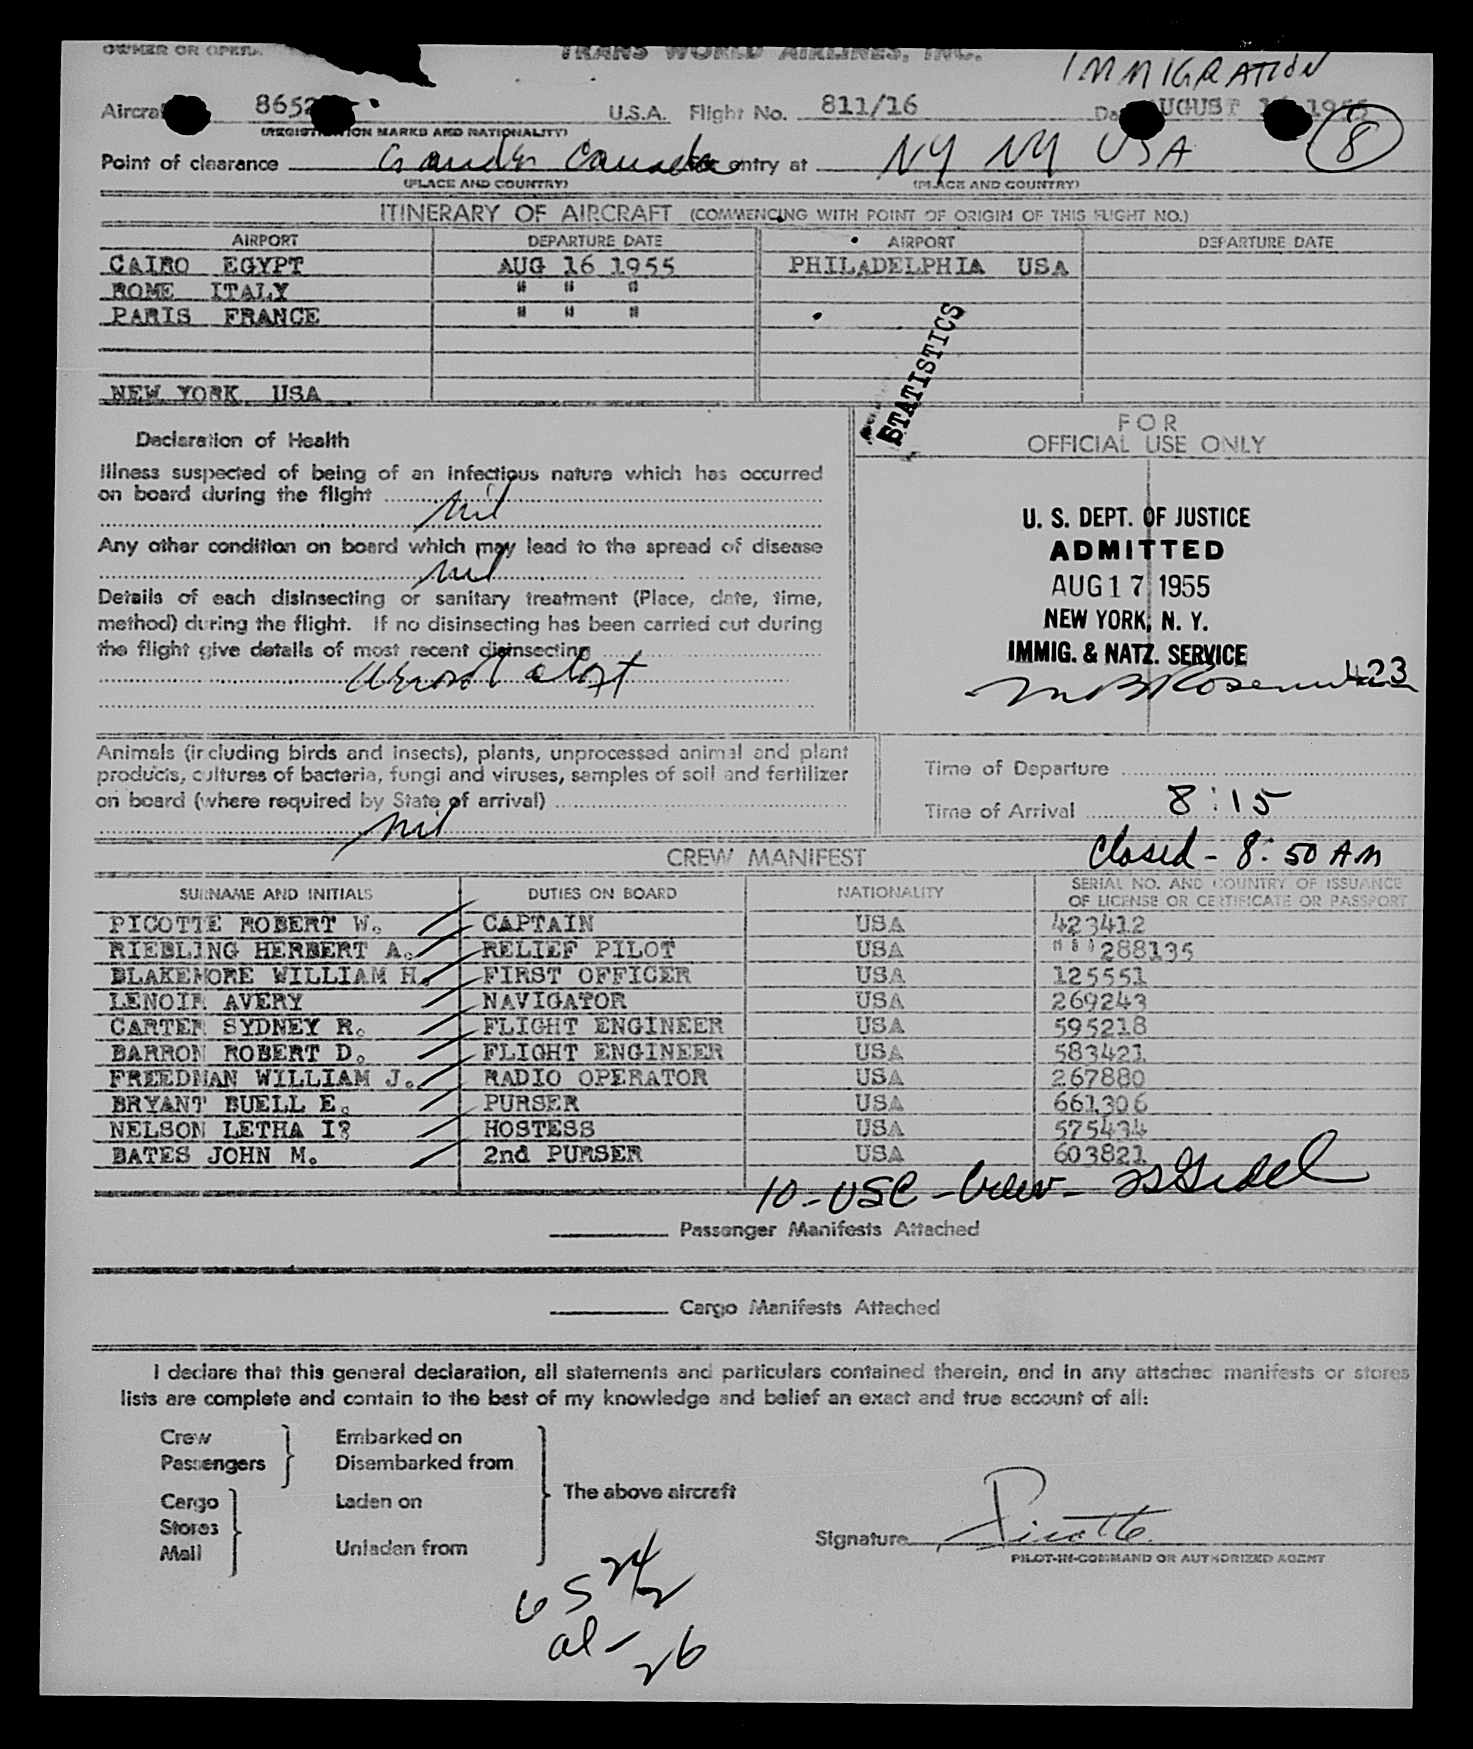 TRANS WORLD AIRLINES, INC.
OWNER OR
IMMIGRATION
U.S.A. Flight No. 811/16 AUGUST 1955
(REGISTRATION MARKS AND NATIONALITY)
8
Point of clearance Gander Canada For entry at NY NY USA
(PLACE AND COUNTRY) (PLACE AND COUNTRY)
ITINERARY OF AIRCRAFT (COMMENCING WITH POINT OF ORIGIN OF THIS FLIGHT NO.)
AIRPORT DEPARTURE DATE AIRPORT DEPARTURE DATE
CAIRO EGYPT AUG 16 1955 PHILADELPHIA USA
ROME ITALY " " "
PARIS FRANCE " " "
NEW YORK USA
STATISTICS
Declaration of Health
Illness suspected of being of an infectious nature which has occurred
on board during the flight
nil
Any other condition on board which may lead to the spread of disease
nil
Details of each disinsecting or sanitary treatment (Place, date, time,
method) during the flight. If no disinsecting has been carried out during
the flight give details of most recent disinsecting
aerosol
FOR
OFFICIAL USE ONLY
U. S. DEPT. OF JUSTICE
ADMITTED
AUG 17 1955
NEW YORK, N. Y.
IMMIG. & NATZ. SERVICE
423
Animals (including birds and insects), plants, unprocessed animal and plant
products, cultures of bacteria, fungi and viruses, samples of soil and fertilizer
on board (where required by State of arrival)
nil
Time of Departure
Time of Arrival 8:15
Closed - 8:50 AM
CREW MANIFEST
SURNAME AND INITIALS DUTIES ON BOARD NATIONALITY SERIAL NO. AND COUNTRY OF ISSUANCE
OF LICENSE OR CERTIFICATE OR PASSPORT
PICOTTE ROBERT W. CAPTAIN USA 423412
RIEBLING HERBERT A. RELIEF PILOT USA 288135
BLAKEMORE WILLIAM H. FIRST OFFICER USA 125551
LENOIR AVERY NAVIGATOR USA 269243
CARTER SYDNEY R. FLIGHT ENGINEER USA 595218
BARRON ROBERT D. FLIGHT ENGINEER USA 583421
FREEDMAN WILLIAM J. RADIO OPERATOR USA 267880
BRYANT BUELL E. PURSER USA 661306
NELSON LETHA I? HOSTESS USA 575434
BATES JOHN M. 2nd PURSER USA 603821
10-USC-Crew-
Passenger Manifests Attached
Cargo Manifests Attached
I declare that this general declaration, all statements and particulars contained therein, and in any attached manifests or stores
lists are complete and contain to the best of my knowledge and belief an exact and true account of all:
Crew Embarked on
Passengers Disembarked from
The above aircraft
Cargo Laden on
Stores
Mail Unladen from
Signature Picotte
PILOT-IN-COMMAND OR AUTHORIZED AGENT
al-26